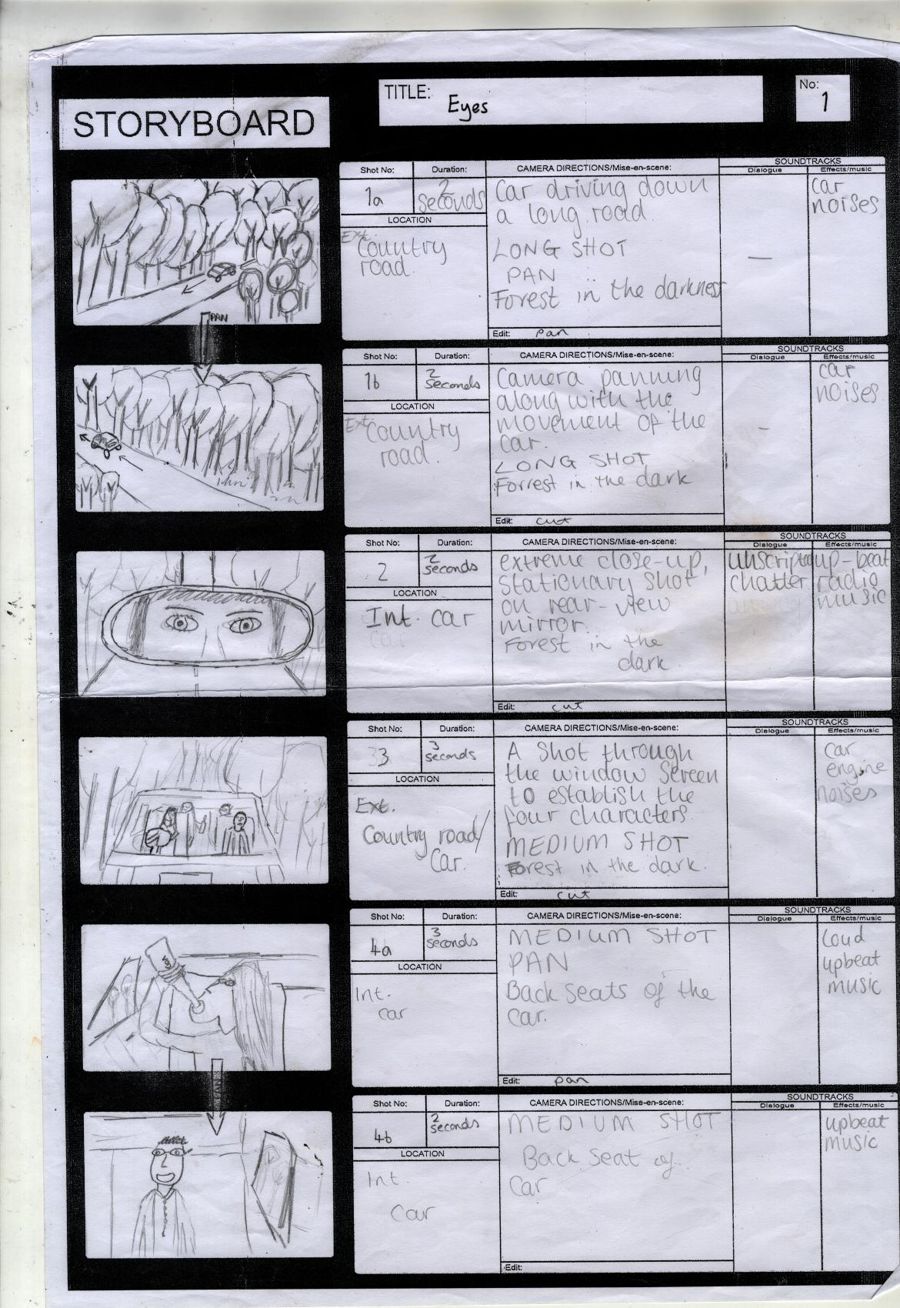 STORYBOARD
TITLE: Eyes
No: 1
Shot No: 1a
Duration: 2 seconds
LOCATION
Ext. Country road.
CAMERA DIRECTIONS/Mise-en-scene:
Car driving down
a long road.
LONG SHOT
PAN
Forest in the darkness
Edit: pan
SOUNDTRACKS
Dialogue
–
Effects/music
car
noises
PAN
Shot No: 1b
Duration: 2 seconds
LOCATION
Ext. Country road.
CAMERA DIRECTIONS/Mise-en-scene:
Camera panning
along with the
movement of the
car.
LONG SHOT
Forrest in the dark
Edit: cut
SOUNDTRACKS
Dialogue
-
Effects/music
car
noises
Shot No: 2
Duration: 2 seconds
LOCATION
Int. car
CAMERA DIRECTIONS/Mise-en-scene:
extreme close-up,
stationary shot
on rear-view
mirror.
Forest in the
dark.
Edit: cut
SOUNDTRACKS
Dialogue
unscripted
chatter
Effects/music
up-beat
radio
music
Shot No: 3
Duration: 3 seconds
LOCATION
Ext.
Country road/
Car.
CAMERA DIRECTIONS/Mise-en-scene:
A Shot through
the window screen
to establish the
four characters
MEDIUM SHOT
Forest in the dark.
Edit: cut
SOUNDTRACKS
Dialogue
Effects/music
car
engine
noises
Shot No: 4a
Duration: 3 seconds
LOCATION
Int.
car
CAMERA DIRECTIONS/Mise-en-scene:
MEDIUM SHOT
PAN
Back seats of the
car.
Edit: pan
SOUNDTRACKS
Dialogue
Effects/music
Loud
upbeat
music
Shot No: 4b
Duration: 2 seconds
LOCATION
Int.
Car
CAMERA DIRECTIONS/Mise-en-scene:
MEDIUM SHOT
Back seat of
car
Edit:
SOUNDTRACKS
Dialogue
Effects/music
upbeat
music